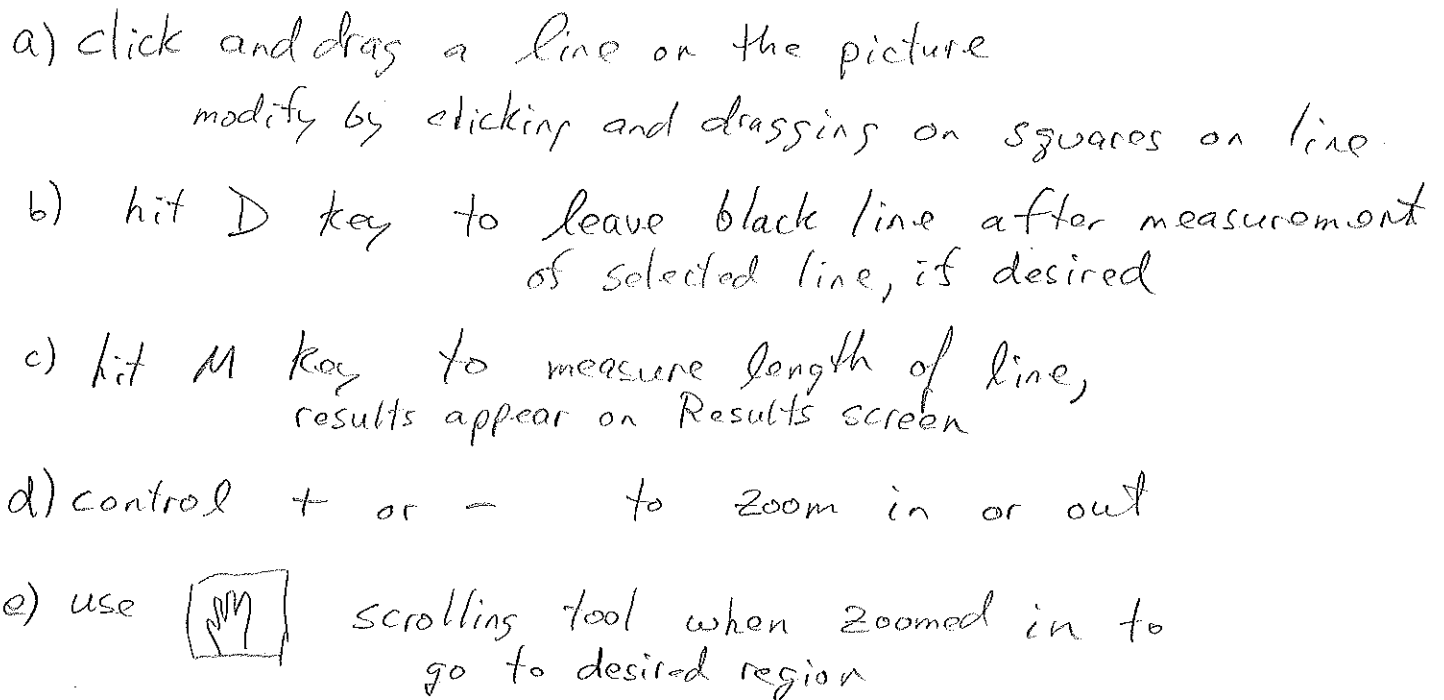 a) click and drag a line on the picture
modify by clicking and dragging on squares on line
b) hit D key to leave black line after measurement
of selected line, if desired
c) hit M key to measure length of line,
results appear on Results screen
d) control + or - to zoom in or out
e) use scrolling tool when zoomed in to
go to desired region